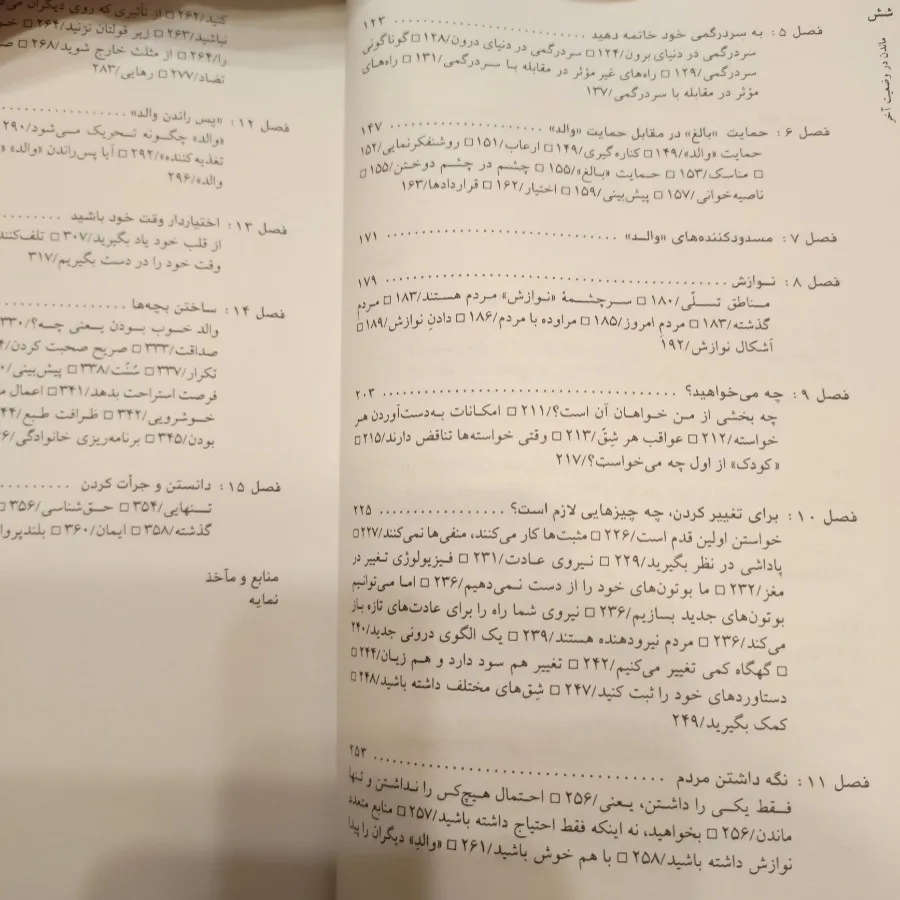 شش
ماندن در وضعیت آخر
فصل ۵: به سردرگمی خود خاتمه دهید ........ ۱۲۳
سردرگمی در دنیای برون/۱۲۴ □ سردرگمی در دنیای درون/۱۲۸ □ گوناگونی
سردرگمی/۱۲۹ □ راه‌های غیر مؤثر در مقابله با سردرگمی/۱۳۱ □ راه‌های
مؤثر در مقابله با سردرگمی/۱۳۷
فصل ۶: حمایت «بالغ» در مقابل حمایت «والد» ........ ۱۴۷
حمایت «والد»/۱۴۹ □ کناره‌گیری/۱۴۹ □ ارعاب/۱۵۱ □ روشنفکرنمایی/۱۵۲
□ مناسک/۱۵۳ □ حمایت «بالغ»/۱۵۵ □ چشم در چشم دوختن/۱۵۵ □
ناصیه‌خوانی/۱۵۷ □ پیش‌بینی/۱۵۹ □ اختیار/۱۶۲ □ قراردادها/۱۶۳
فصل ۷: مسدودکننده‌های «والد» ........ ۱۷۱
فصل ۸: نوازش ........ ۱۷۹
مناطق تسلّی/۱۸۰ □ سرچشمهٔ «نوازش» مردم هستند/۱۸۳ □ مردم
گذشته/۱۸۳ □ مردم امروز/۱۸۵ □ مراوده با مردم/۱۸۶ □ دادن نوازش/۱۸۹ □
اَشکال نوازش/۱۹۲
فصل ۹: چه می‌خواهید؟ ........ ۲۰۳
چه بخشی از من خواهان آن است؟/۲۱۱ □ امکانات به‌دست‌آوردن هر
خواسته/۲۱۲ □ عواقب هر شِقّ/۲۱۳ □ وقتی خواسته‌ها تناقض دارند/۲۱۵ □
«کودک» از اول چه می‌خواست؟/۲۱۷
فصل ۱۰: برای تغییر کردن، چه چیزهایی لازم است؟ ........ ۲۲۵
خواستن اولین قدم است/۲۲۶ □ مثبت‌ها کار می‌کنند، منفی‌ها نمی‌کنند/۲۲۷ □
پاداشی در نظر بگیرید/۲۲۹ □ نیروی عادت/۲۳۱ □ فیزیولوژی تغییر در
مغز/۲۳۲ □ ما بوتون‌های خود را از دست نمی‌دهیم/۲۳۶ □ اما می‌توانیم
بوتون‌های جدید بسازیم/۲۳۶ □ نیروی شما راه را برای عادت‌های تازه باز
می‌کند/۲۳۶ □ مردم نیرودهنده هستند/۲۳۹ □ یک الگوی درونی جدید/۲۴۰
□ گهگاه کمی تغییر می‌کنیم/۲۴۲ □ تغییر هم سود دارد و هم زیان/۲۴۴ □
دستاوردهای خود را ثبت کنید/۲۴۷ □ شِق‌های مختلف داشته باشید/۲۴۸ □
کمک بگیرید/۲۴۹
فصل ۱۱: نگه داشتن مردم ........ ۲۵۳
فقط یکی را داشتن، یعنی/۲۵۶ □ احتمال هیچ‌کس را نداشتن و تنها
ماندن/۲۵۶ □ بخواهید، نه اینکه فقط احتیاج داشته باشید/۲۵۷ □ منابع متعدد
نوازش داشته باشید/۲۵۸ □ با هم خوش باشید/۲۶۱ □ «والدِ» دیگران را پیدا
کنید/۲۶۲ □ از تأثیری که روی دیگران
نباشید/۲۶۳ □ زیر قولتان نزنید/۲۶۴ □
را/۲۶۴ □ از مثلث خارج شوید/۲۶۸ □
تضاد/۲۷۷ □ رهایی/۲۸۳
فصل ۱۲: «پس راندن والد» ........
«والد» چگونه تحریک می‌شود/۲۹۰
تغذیه‌کننده»/۲۹۲ □ آیا پس‌راندن «والد»
والد»/۲۹۶
فصل ۱۳: اختیاردار وقت خود باشید ........
از قلب خود یاد بگیرید/۳۰۷ □ تلف‌کنند
وقت خود را در دست بگیریم/۳۱۷
فصل ۱۴: ساختن بچه‌ها ........
والد خوب بودن یعنی چه؟/۳۳۰
صداقت/۳۳۳ □ صریح صحبت کردن/
تکرار/۳۳۷ □ سُنّت/۳۳۸ □ پیش‌بینی/
فرصت استراحت بدهد/۳۴۱ □ اعمال
خوشرویی/۳۴۲ □ ظرافت طبع/
بودن/۳۴۵ □ برنامه‌ریزی خانوادگی/
فصل ۱۵: دانستن و جرأت کردن ........
تنهایی/۳۵۴ □ حق‌شناسی/۳۵۶ □
گذشته/۳۵۸ □ ایمان/۳۶۰ □ بلندپروا
منابع و مآخذ
نمایه